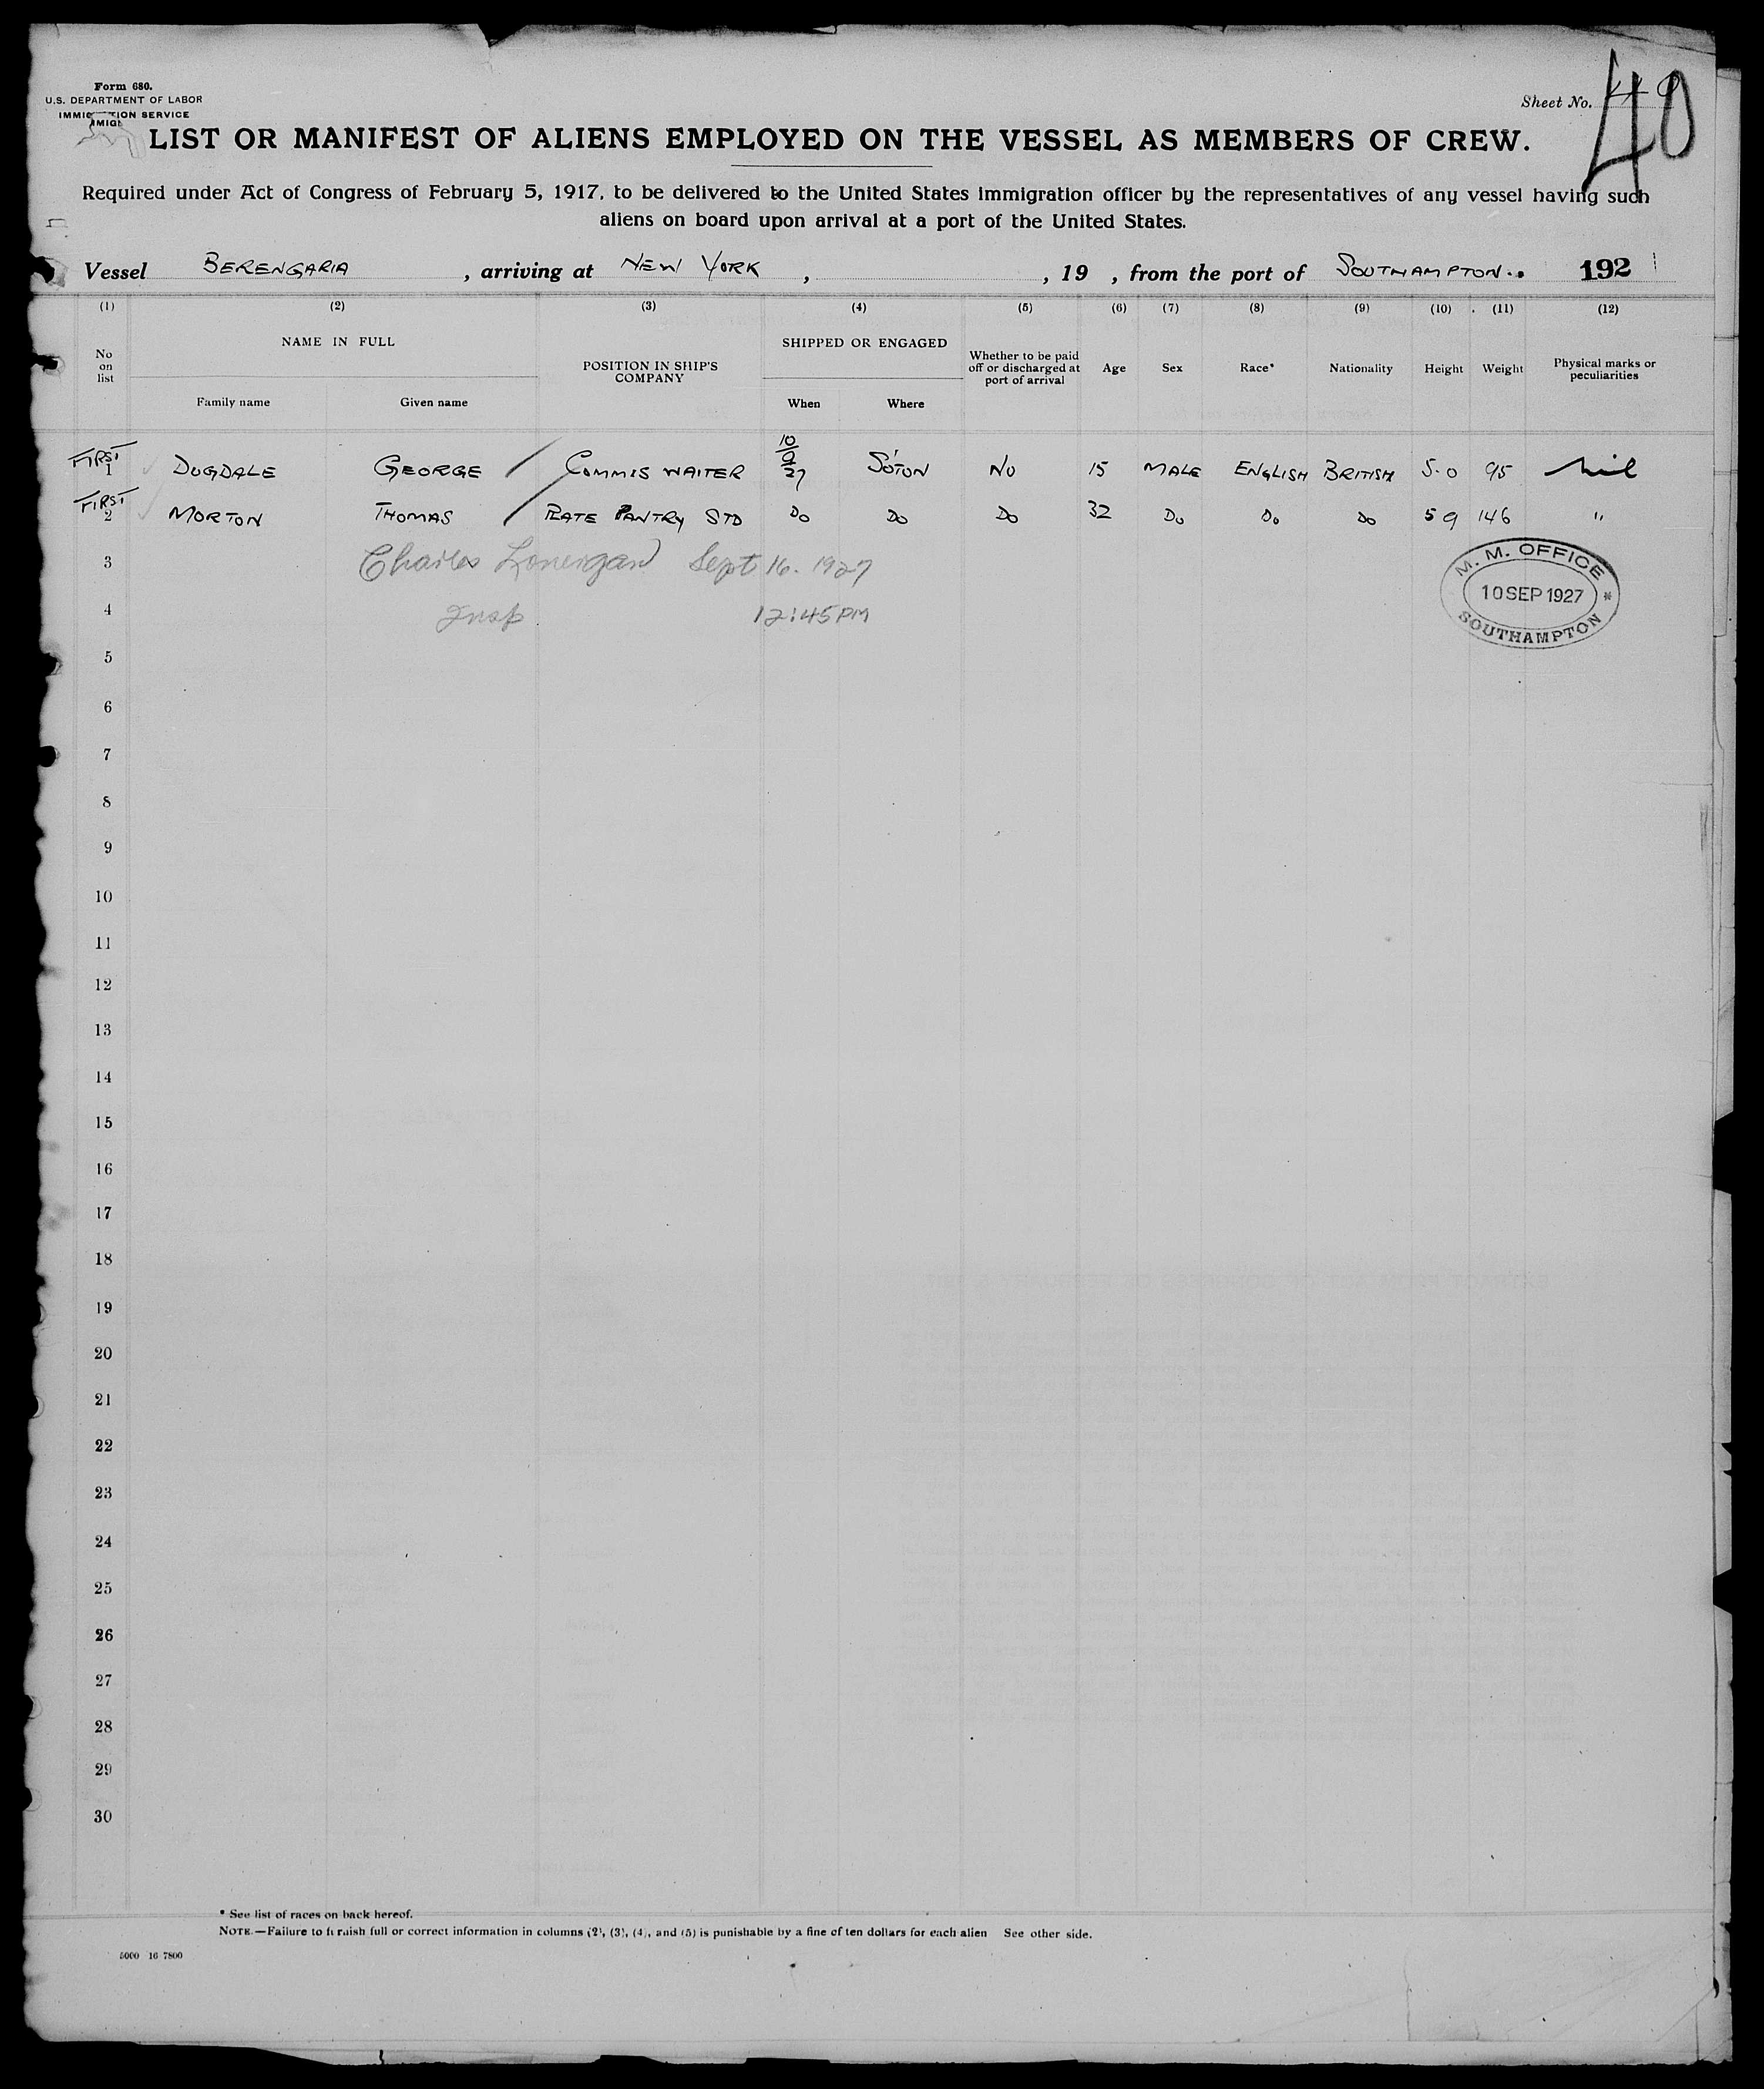 Form 680.
U.S. DEPARTMENT OF LABOR
IMMIGRATION SERVICE
Sheet No. 40
LIST OR MANIFEST OF ALIENS EMPLOYED ON THE VESSEL AS MEMBERS OF CREW.
Required under Act of Congress of February 5, 1917, to be delivered to the United States immigration officer by the representatives of any vessel having such
aliens on board upon arrival at a port of the United States.
Vessel BERENGARIA, arriving at NEW YORK, , 19 , from the port of SOUTHAMPTON. 192
(1) (2) (3) (4) (5) (6) (7) (8) (9) (10) (11) (12)
No on list NAME IN FULL Family name Given name POSITION IN SHIP'S COMPANY SHIPPED OR ENGAGED When Where Whether to be paid off or discharged at port of arrival Age Sex Race* Nationality Height Weight Physical marks or peculiarities
FIRST 1 DUGDALE GEORGE COMMIS WAITER 10/9/27 S'OTON NO 15 MALE ENGLISH BRITISH 5.0 95 Nil
FIRST 2 MORTON THOMAS PLATE PANTRY STD DO DO DO 32 DO DO DO 5 9 146 "
3 Charles Lonergan Sept 16. 1927
4 Insp. 12:45PM
M. M. OFFICE
10 SEP 1927
SOUTHAMPTON
5
6
7
8
9
10
11
12
13
14
15
16
17
18
19
20
21
22
23
24
25
26
27
28
29
30
* See list of races on back hereof.
NOTE.—Failure to furnish full or correct information in columns (2), (3), (4), and (5) is punishable by a fine of ten dollars for each alien See other side.
5000 16 7800